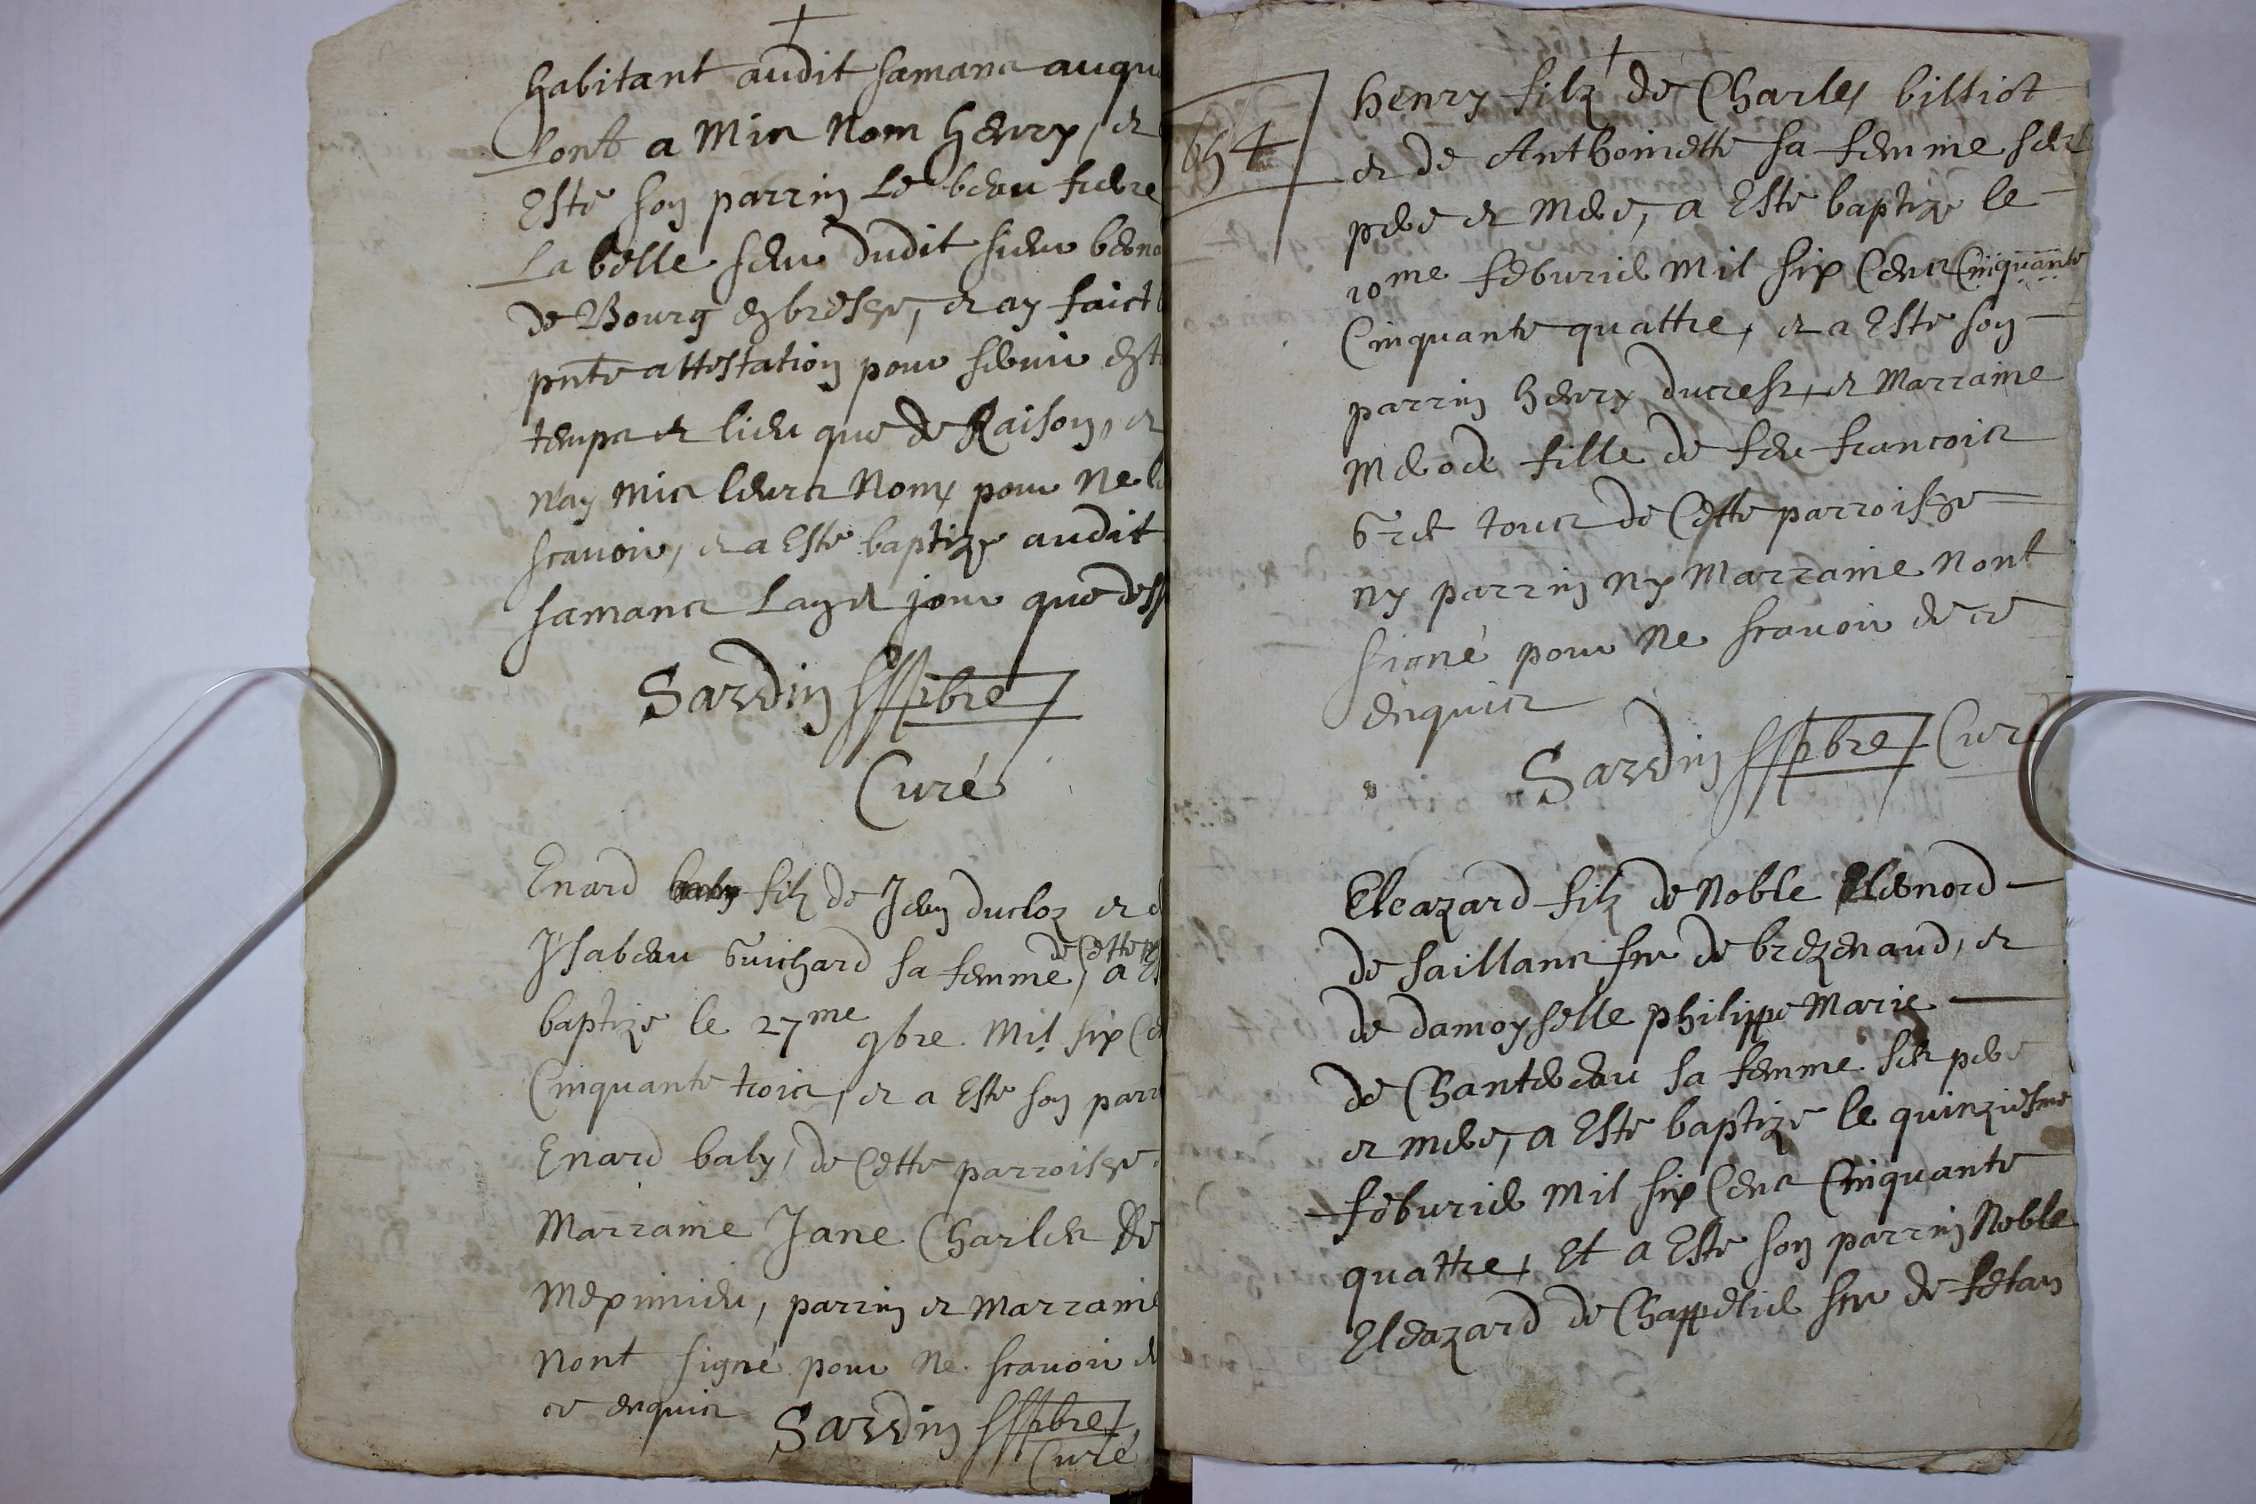 habitant audit samans auqu
lont a mis nom henry, et
Esté son parrin le beau frere
La belle seur dudit sieur bern
de Bourg en bresse, et ay faict
pnte attestation pour servir en
temps et lieu que de Raison, et
n'ay mis leurs noms pour ne
scavoir, et a esté baptize audit
samans lan et jour que dess
Sardin pbre
Curé
Enard filz de Jean ducloz et d
Ysabeau Guichard sa femme, de cette a
baptize le 27me 9bre. Mil six Ce
Cinquante trois, et a esté son parr
Enard baly, de cette parroisse
Marraine Jane Charles de
Meximieu, parrin et Marraine
nont signé pour ne scavoir d
ce enquis Sardin pbre
Curé
1654
henry filz de Charles billiot
et de Anthoinette sa femme ses
pere et mere, a esté baptize le
10me feburier mil six Cens Cinquante
Cinquante quattre, et a esté son
parrin henry ducrest, et Marraine
fille de feu francois
tous de cette parroisse
ny parrin ny Marraine nont
signé pour ne scavoir de ce
enquis
Sardin pbre Curé
Eleazard filz de Noble Eleonord
de saillans sr de brezenaud, et
de damoyselle philippe Marie
de Chantereau sa femme ses pere
et mere, a esté baptize le quinziesme
feburier mil six Cens Cinquante
quattre, Et a esté son parrin Noble
Eleazard de Chappelier sr de fetan